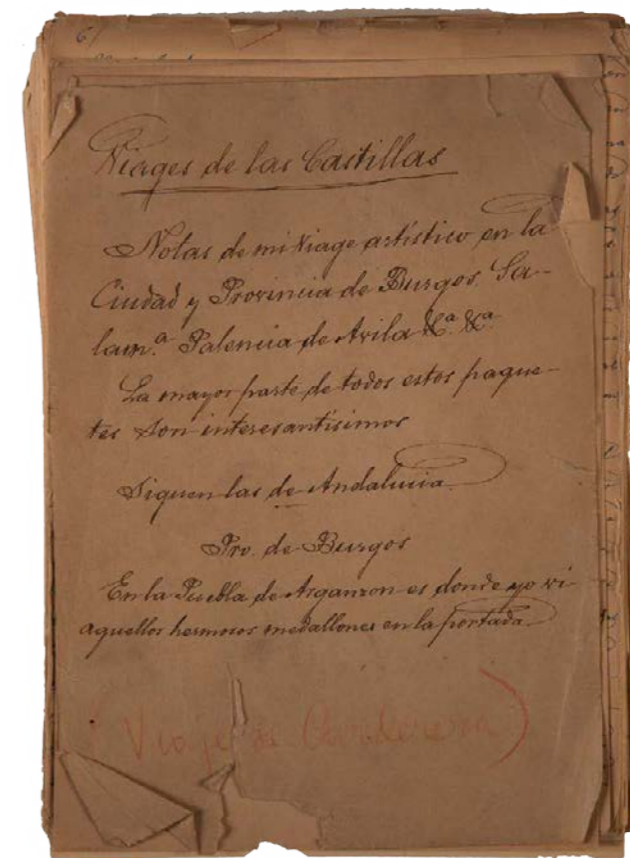 6
Viages de las Castillas
Notas de mi Viage artístico en la
Ciudad y Provincia de Burgos. Sa-
lam.ª Palencia de Avila &ª &ª
La mayor parte de todos estos paque-
tes son interesantísimos
Siguen las de Andalucia
Pro. de Burgos
En la Puebla de Arganzon es donde yo vi
aquellos hermosos medallones en la portada
(Viaje de Carderera)